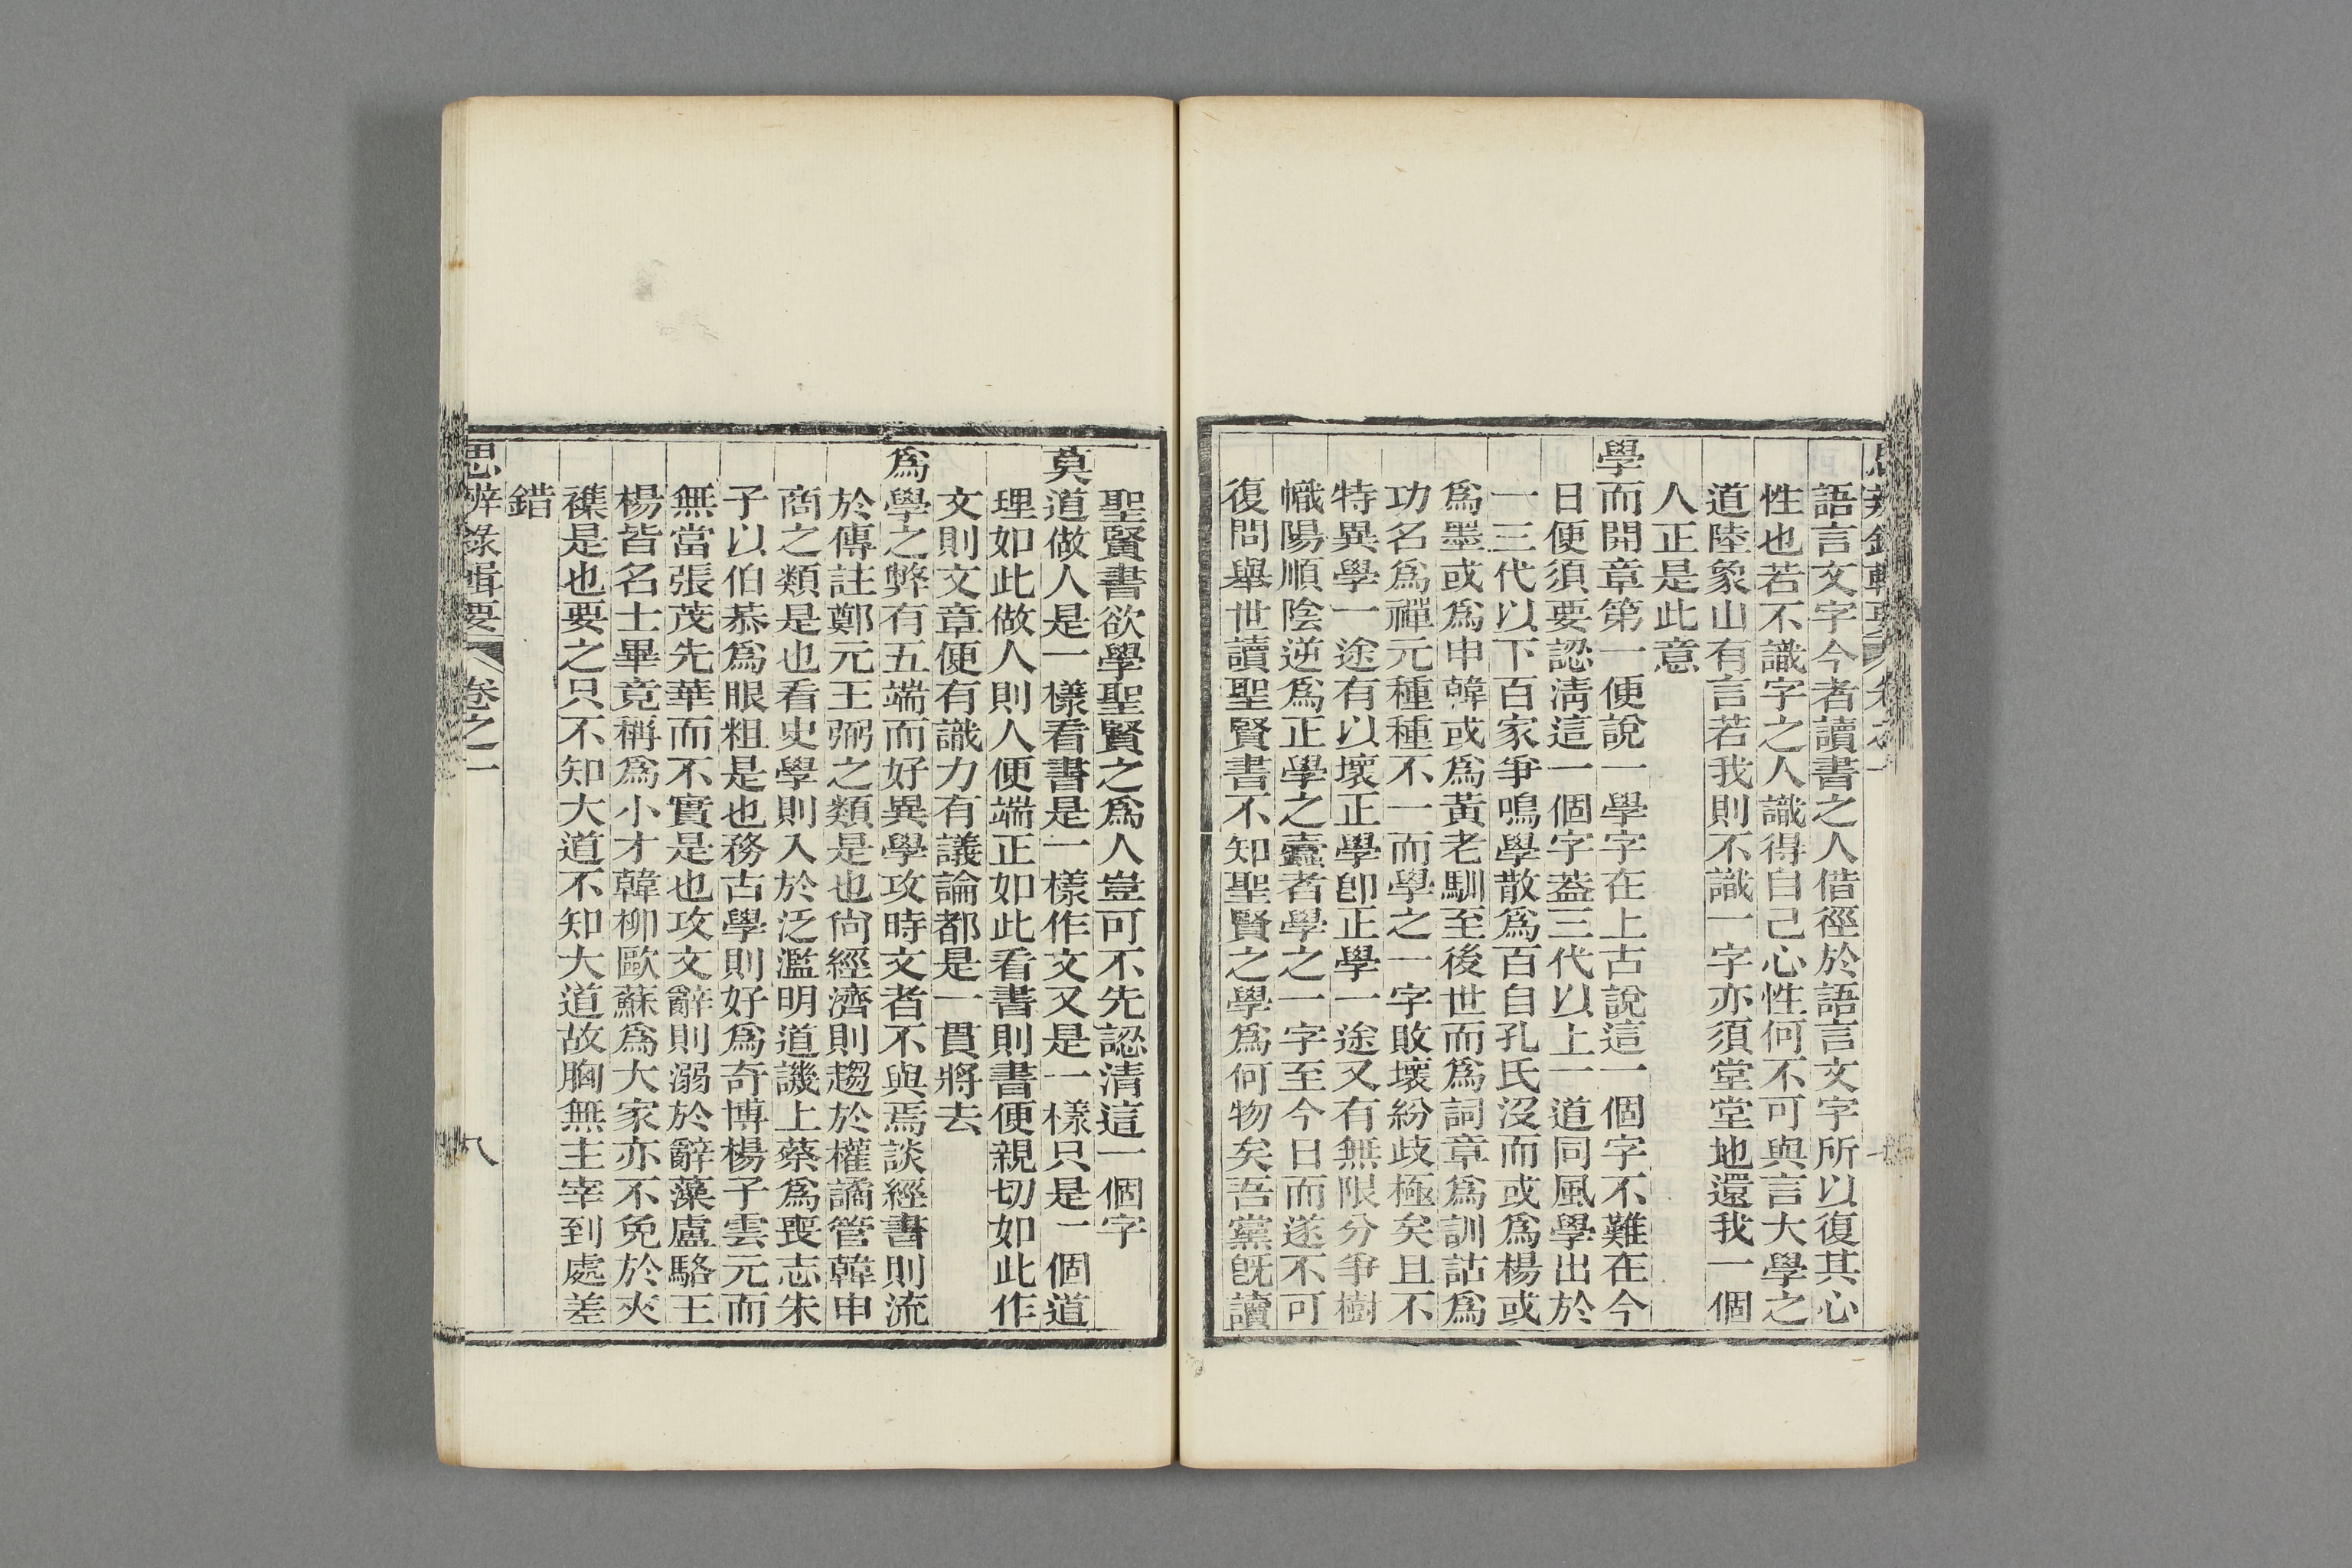 語言文字今者讀書之人借徑於語言文字所以復其心
性也若不識字之人識得自己心性何不可與言大學之
道陸象山有言若我則不識一字亦須堂堂地還我一個
人正是此意
學而開章第一便說一學字在上古說這一個字不難在今
日便須要認淸這一個字葢三代以上一道同風學出於
一三代以下百家爭鳴學散爲百自孔氏沒而或爲楊或
爲墨或爲申韓或爲黃老馴至後世而爲詞章爲訓詁爲
功名爲禪元種種不一而學之一字敗壞紛歧極矣且不
特異學一途有以壞正學卽正學一途又有無限分爭樹
幟陽順陰逆爲正學之蠹者學之一字至今日而遂不可
復問舉世讀聖賢書不知聖賢之學爲何物矣吾黨旣讀
聖賢書欲學聖賢之爲人豈可不先認清這一個字
莫道做人是一樣看書是一樣作文又是一樣只是一個道
理如此做人則人便端正如此看書則書便親切如此作
文則文章便有識力有議論都是一貫將去
爲學之弊有五端而好異學攻時文者不與焉談經書則流
於傳註鄭元王弼之類是也尙經濟則趨於權譎管韓申
商之類是也看史學則入於泛濫明道譏上蔡爲喪志朱
子以伯恭爲眼粗是也務古學則好爲奇博楊子雲元而
無當張茂先華而不實是也攻文辭則溺於辭藻盧駱王
楊皆名士畢竟稱爲小才韓柳歐蘇爲大家亦不免於夾
襍是也要之只不知大道不知大道故胸無主宰到處差
錯
思辨錄輯要 卷之一 八